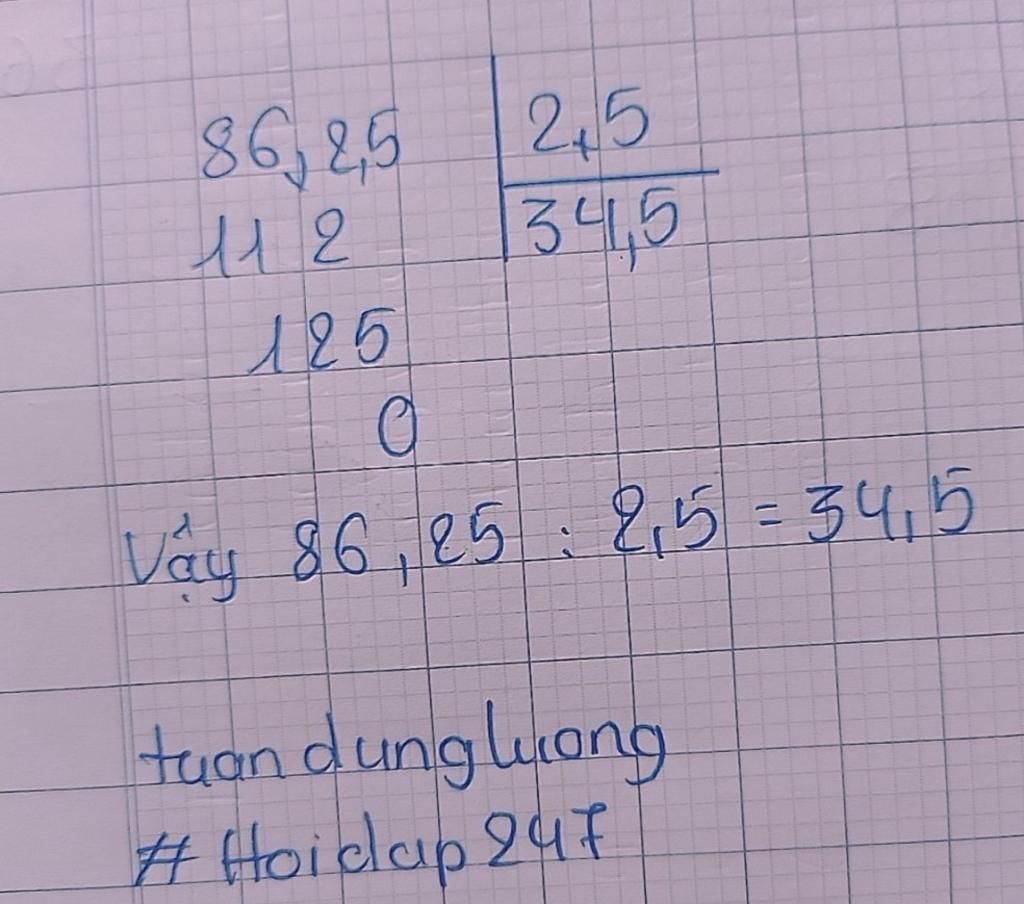 86,2,5 2,5
11 2 34,5
125
0
Vậy 86,25 : 2,5 = 34,5
tuandungluong
# Hoidap247